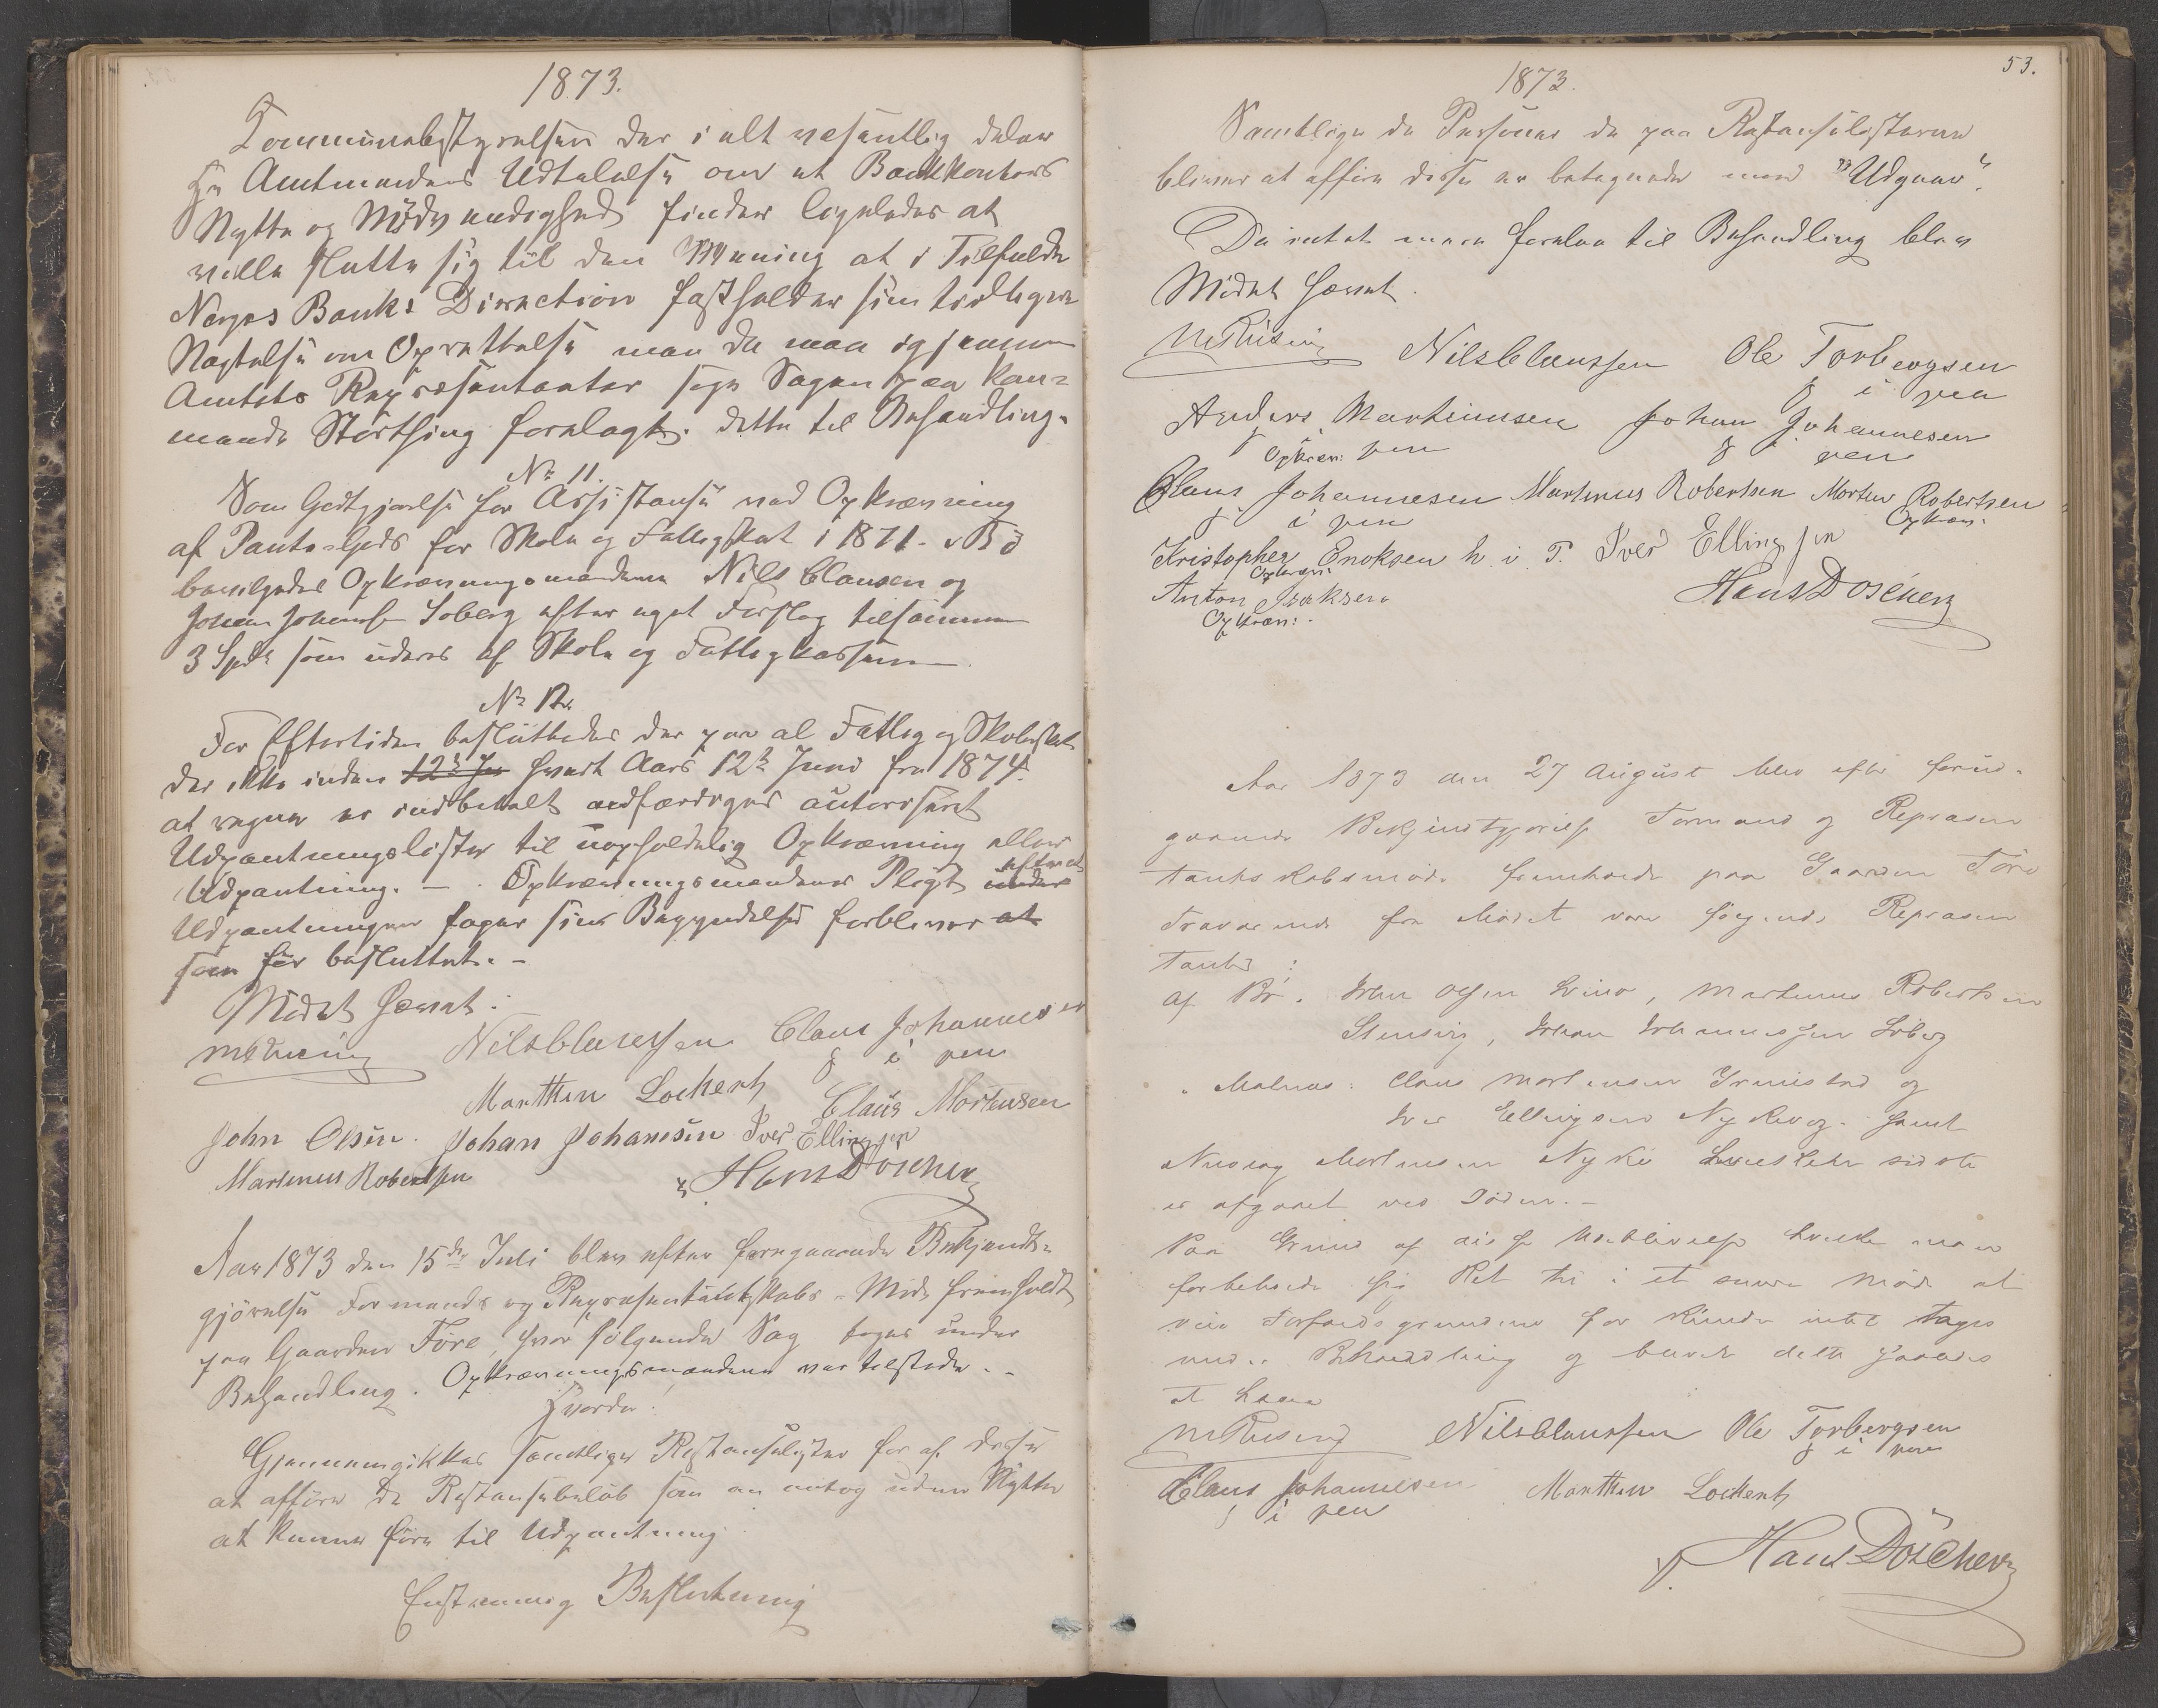 1873.
Kommunebestyrelsen der i alt væsentlig deler
Hr Amtmandens Udtalelse om et Bankkontors
Nytte og Nödvendighed finder ligeledes at
ville slutte sig til den Mening at i Tilfælde
Norges Banks Direction fastholder sin tidligere
Nægtelse om Oprettelse man da maa igjennem
Amtets Repræsentanter søge Sagen paa kom=
mende Storthing forelagt dette til Behandling.
No 11.
Som Godtgjørelse for Assistanse ved Opkrævning
af Pante-Gods for Skole og Fattigskat i 1871. i Bö
bevilgedes Opkrævningsmændene Nils Clausen og
Johan Johans Soberg efter eget Forslag tilsammen
3 Spd som uderes af Skole og Fattigkassen
No 12.
For Eftertiden besluttedes der paa al Fattig og Skoleskat
der ikke inden 12te Ju hvert Aars 12te Juni fra 1874.
at regne er indbetalt udfærdiges autoriseret
Udpantningslister til uopholdelig Opkrævning eller
Udpantning. — Opkrævningsmændenes Pligt under efterat
Udpantningen tager sin Begyndelse forbliver at
som før besluttet. —
Mödet hævet.
Nils Claussen Claus Johannesen
i pen
Martthin Lockert Claus Mortensen
John Olsen. Johan Johansen Iver Ellingsen
Martinus Robertsen Hans Döscher
Aar 1873 den 15de Juli blev efter foregaaende Bekjendt=
gjörelse Formands og Repræsentantskabs-Möde fremholdt
paa Gaarden Före, hvor følgende Sag toges under
Behandling. Opkrævningsmændene var tilstede. -
Hvorda!
Gjennemgikkes samtlige Restanselister for af disse
at afføre de Restansebeløb som man antog uden Nytte
at kunne føre til Udpantning
Enstemmig Beslutning
53.
1873.
Samtlige de Personer de paa Restanselisterne
bliver at afføre disse er betegnede med "Udgaar".
Da intet mere forelaa til Behandling blev
Mödet hævet.
Nils Claussen Ole Torbergsen
i pen
Anders Martinussen Johan Johannesen
Opkræv: pen i pen
Claus Johannesen Martinus Robertsen Morten Robertsen
i pen Opkræv:
Kristopher Enoksen h. i. P. Iver Ellingsen
Opkræv:
Anton Isaksen Hans Döscher
Opkræv:
Aar 1873 den 27 August blev efter forud-
gaaende Bekjendtgjørelse Formand og Repræsen
tantskabsmöde fremholdt paa Gaarden Före
Fraværende fra Mödet vare følgende Repræsen
tanter:
af Bö. John Olsen Vinje, Martinus Robertsen
Steinsvig, Johan Johannessen Soberg
" Malnes: Claus Mortensen Grimstad og
Iver Ellingsen Nykvog. samt
Mortensen Nyke hvilken sidste
er afgaaet ved Döden. -
Paa Grund af disses Udeblivelse hvorde man
forbeholde sig Ret til i et senere Möde at
veie Forfaldsgrundene for kunde intet tages
under Behandling og blev dette Møde
at hæve
Nils Claussen Ole Torbergsen
i pen
Claus Johannesen Martthin Lockert
i pen
Hans Döscher